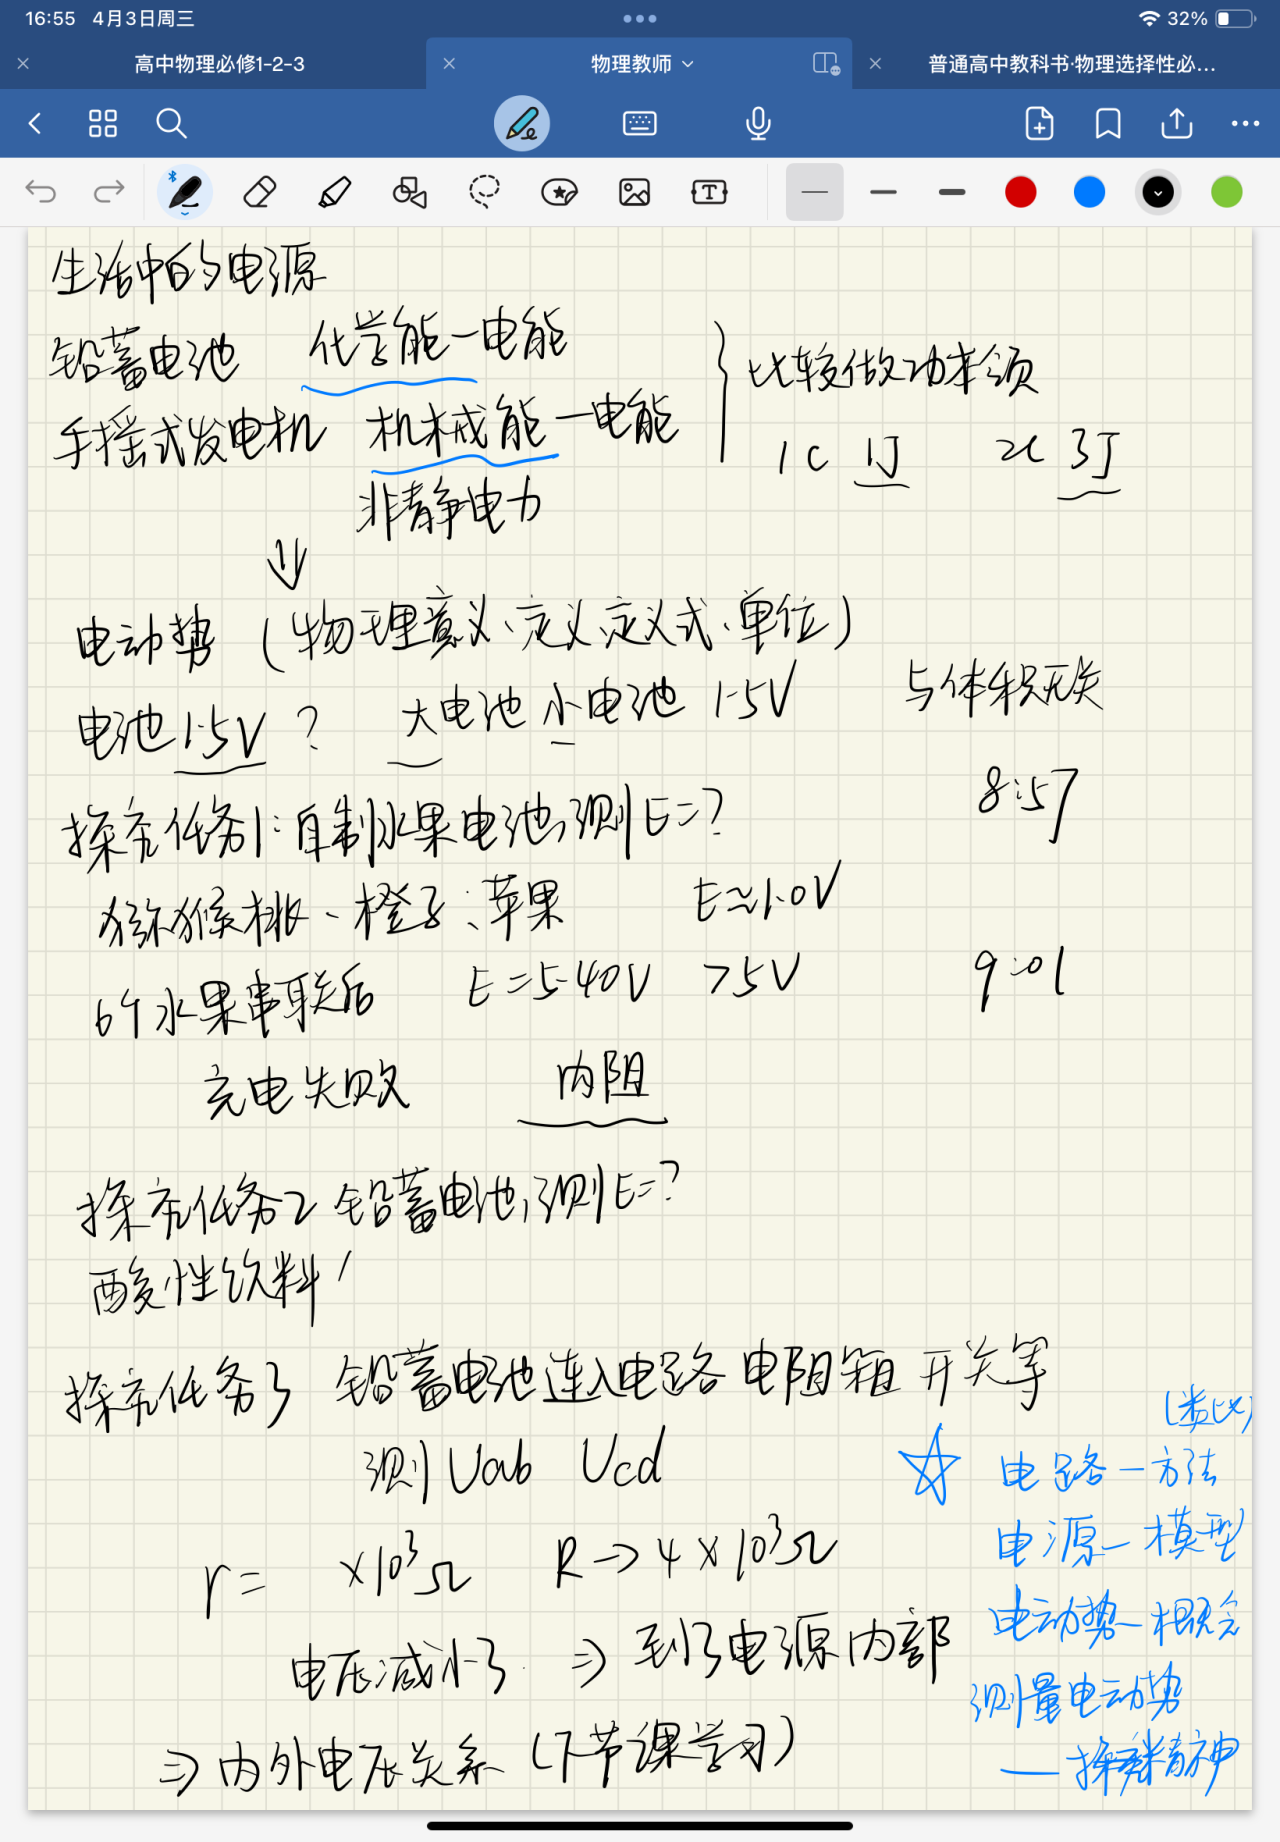 16:55 4月3日周三
32%
高中物理必修1-2-3
物理教师
普通高中教科书·物理选择性必...
生活中的电源
铅蓄电池 化学能一电能
手摇式发电机 机械能一电能
比较做功本领
1C 1J 2C 3J
非静电力
电动势(物理意义、定义、定义式、单位)
电池1.5V? 大电池 小电池 1.5V
与体积无关
8:57
探究任务1:自制水果电池,测E=?
猕猴桃、橙子、苹果 E≈1.0V
6个水果串联后 E=5.40V >5V
9:01
充电失败 内阻
探究任务2 铅蓄电池,测E=?
酸性饮料
探究任务3 铅蓄电池连入电路 电阻箱 开关等
测Uab Ucd
r= ×10³Ω R→4×10³Ω
电压减小了 ⇒ 到了电源内部
⇒内外电压关系(下节课学习)
(类比)
☆ 电路一方法
电源一模型
电动势一概念
测量电动势
—探究精神